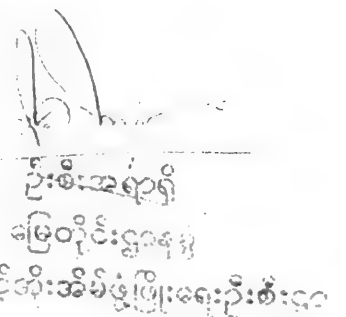 ဦးစီးအရာရှိ
မြေတိုင်းဌာနခွဲ
အိုးအိမ်ဖွံ့ဖြိုးရေးဦးစီးဌာ